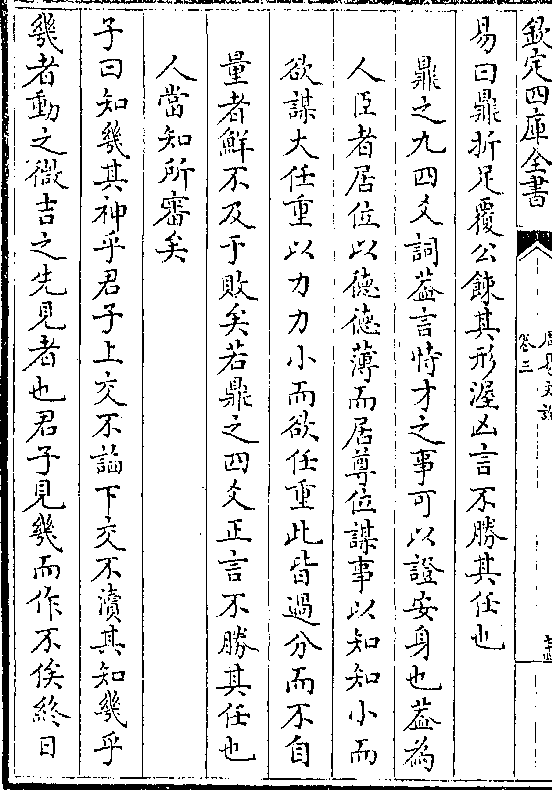 欽定四庫全書
卷三
易曰鼎折足覆公餗其形渥凶言不勝其任也
鼎之九四爻詞葢言恃才之事可以證安身也葢為
人臣者居位以德德薄而居尊位謀事以知知小而
欲謀大任重以力力小而欲任重此皆過分而不自
量者鮮不及于敗矣若鼎之四爻正言不勝其任也
人當知所審矣
子曰知幾其神乎君子上交不諂下交不瀆其知幾乎
幾者動之微吉之先見者也君子見幾而作不俟終日